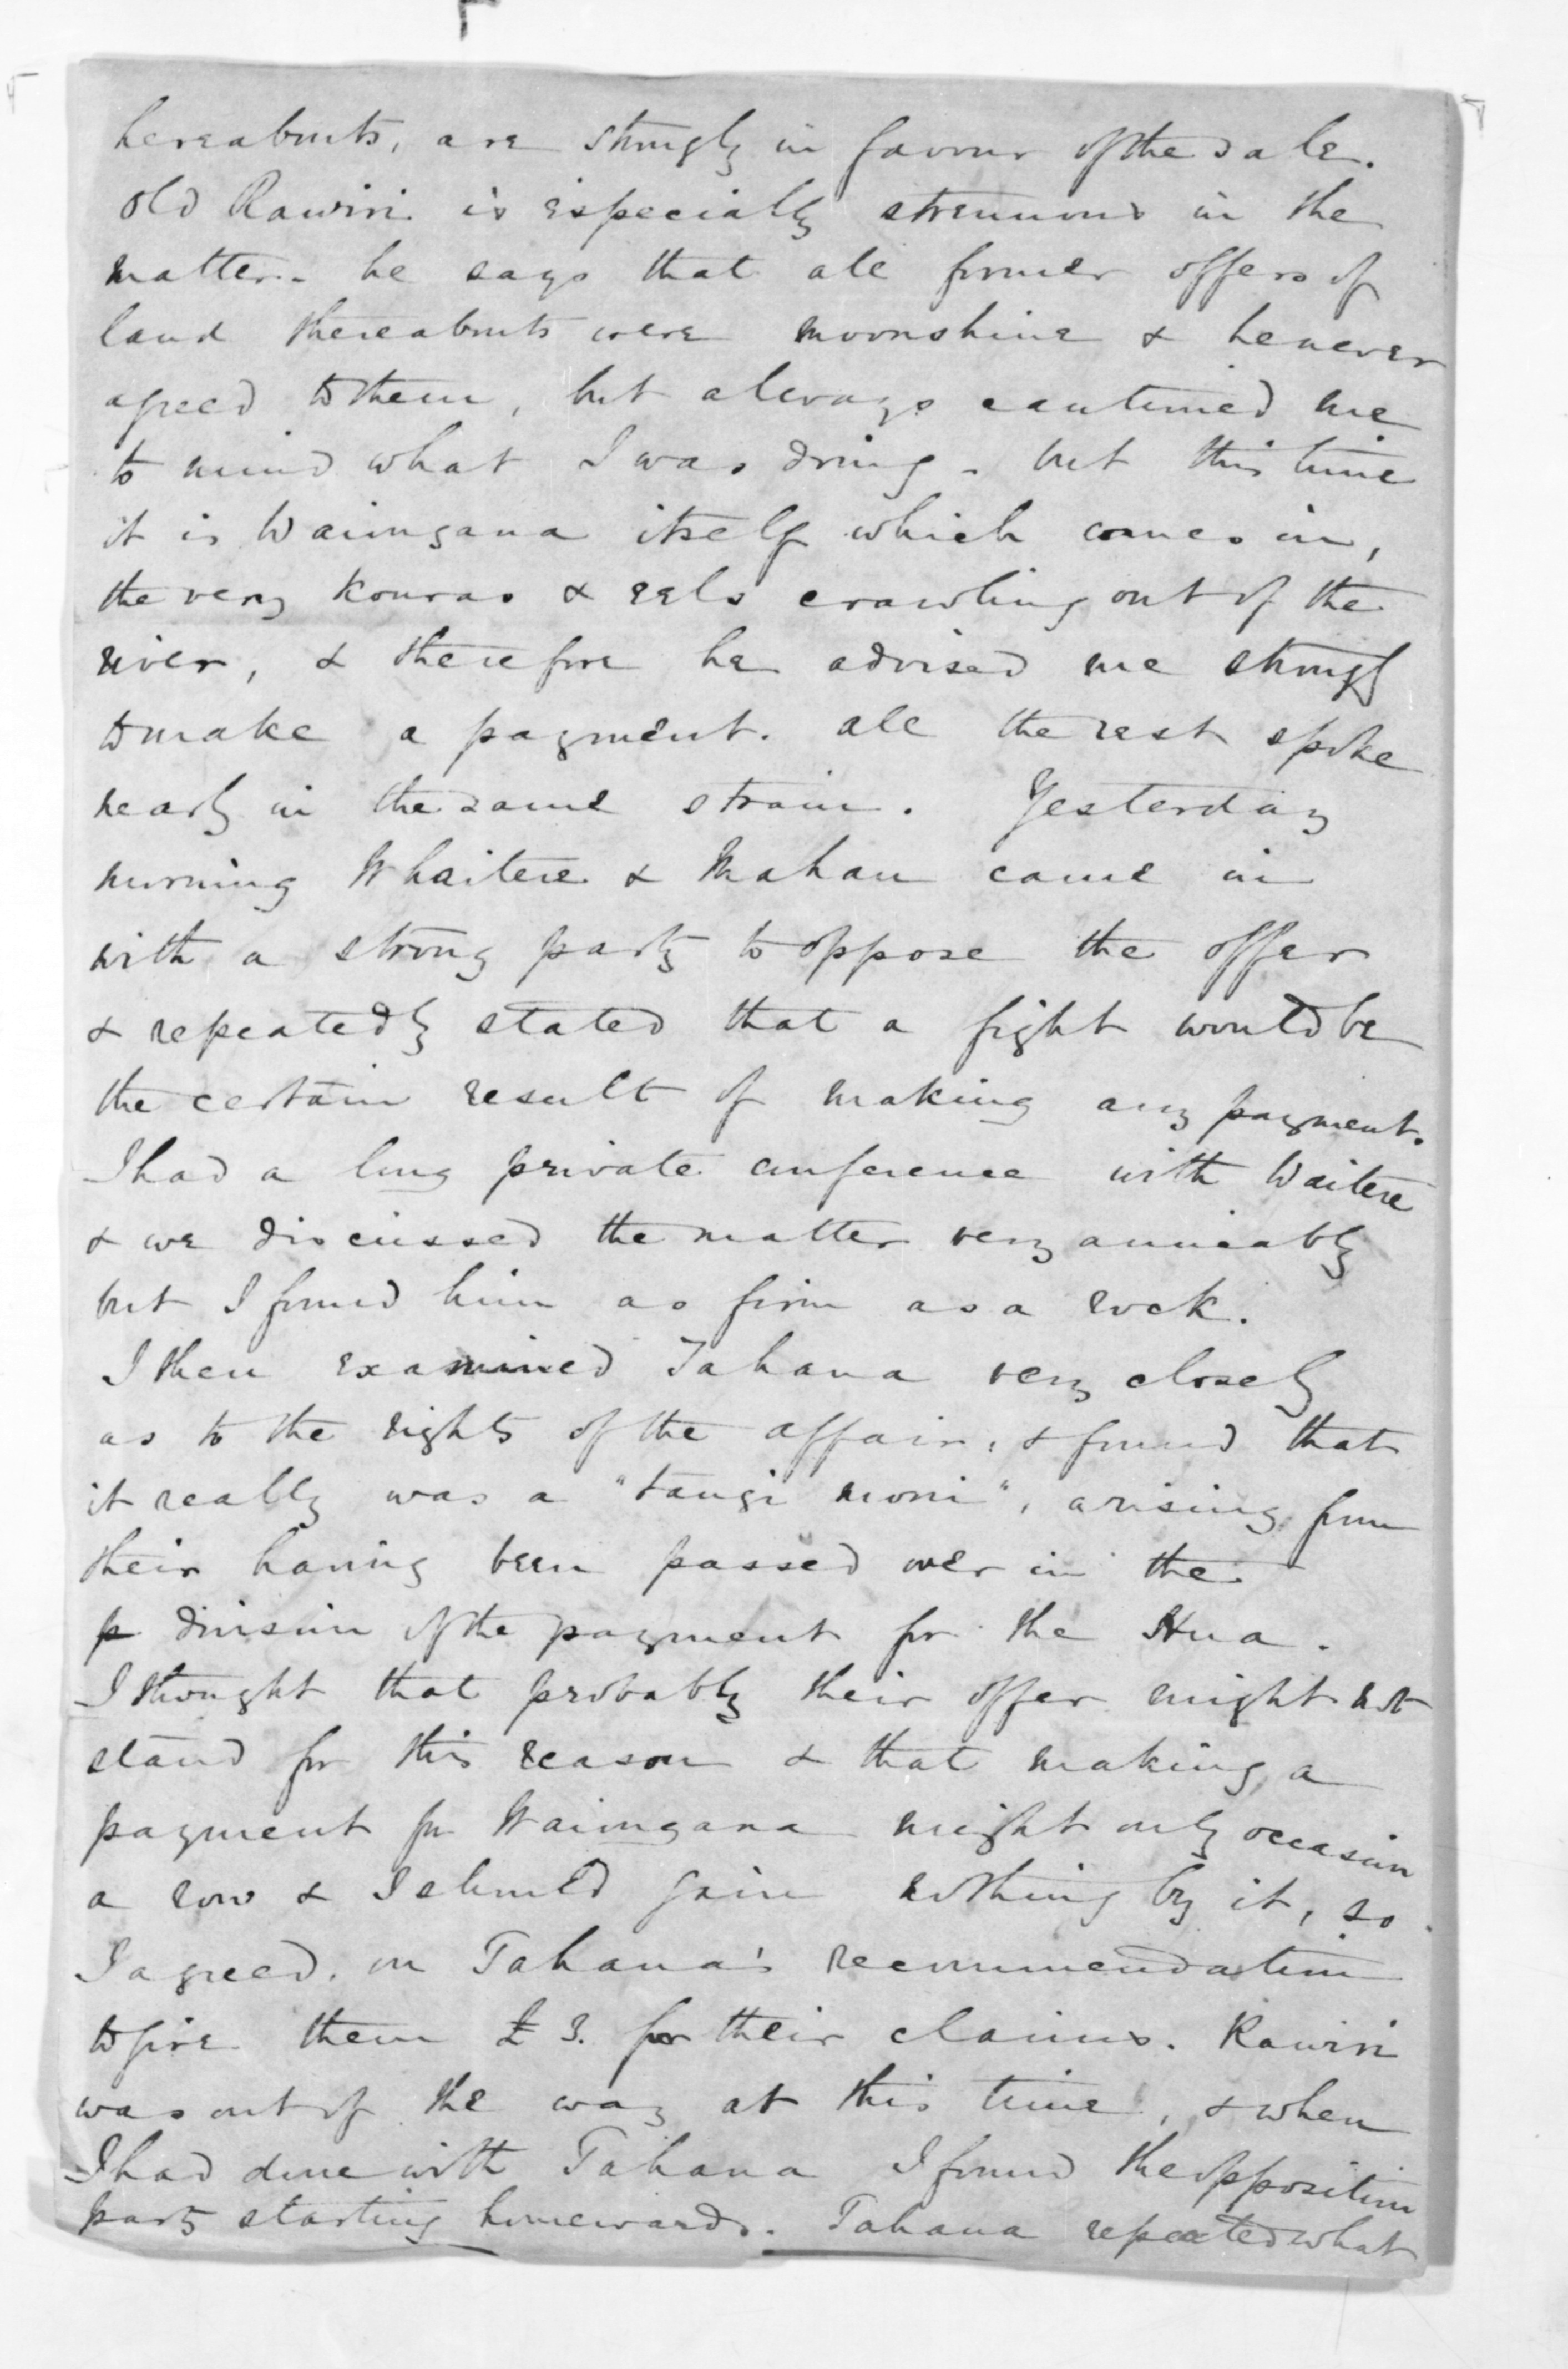 hereabouts, are strongly in favour of the sale.
Old Rawiri is especially strenuous in the
matter - he says that all former offers of
land thereabouts were moonshine & he never
agreed to them, but always cautioned me
to mind what I was doing - but this time
it is Waiongana itself which comes in,
the very Kouras & eels crawling out of the
river, & therefore he advised me strongly
to make a payment. all the rest spoke
nearly in the same strain. Yesterday
morning Whaitere & Mahau came in
with a strong party to oppose the offer
& repeatedly stated that a fight would be
the certain result of making any payment.
I had a long private conference with Waitere
& we discussed the matter very amicably
but I found him as firm as a rock.
I then examined Tahana very closely
as to the rights of the affair, & found that
it really was a "tangi moni", arising from
their having been passed over in the
division of the payment for the Hua.
I thought that probably their offer might not
stand for this reason & that making a
payment for Waiongana might only occasion
a row & I should gain nothing by it, so
I agreed, on Tahana's recommendation
to give them £3. for their claims. Rawiri
was out of the way at this time, & when
I had done with Tahana I found the opposition
party starting homewards. Tahana repeated what